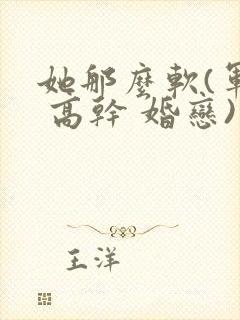 她那麼軟(軍
高幹 婚戀)
王洋